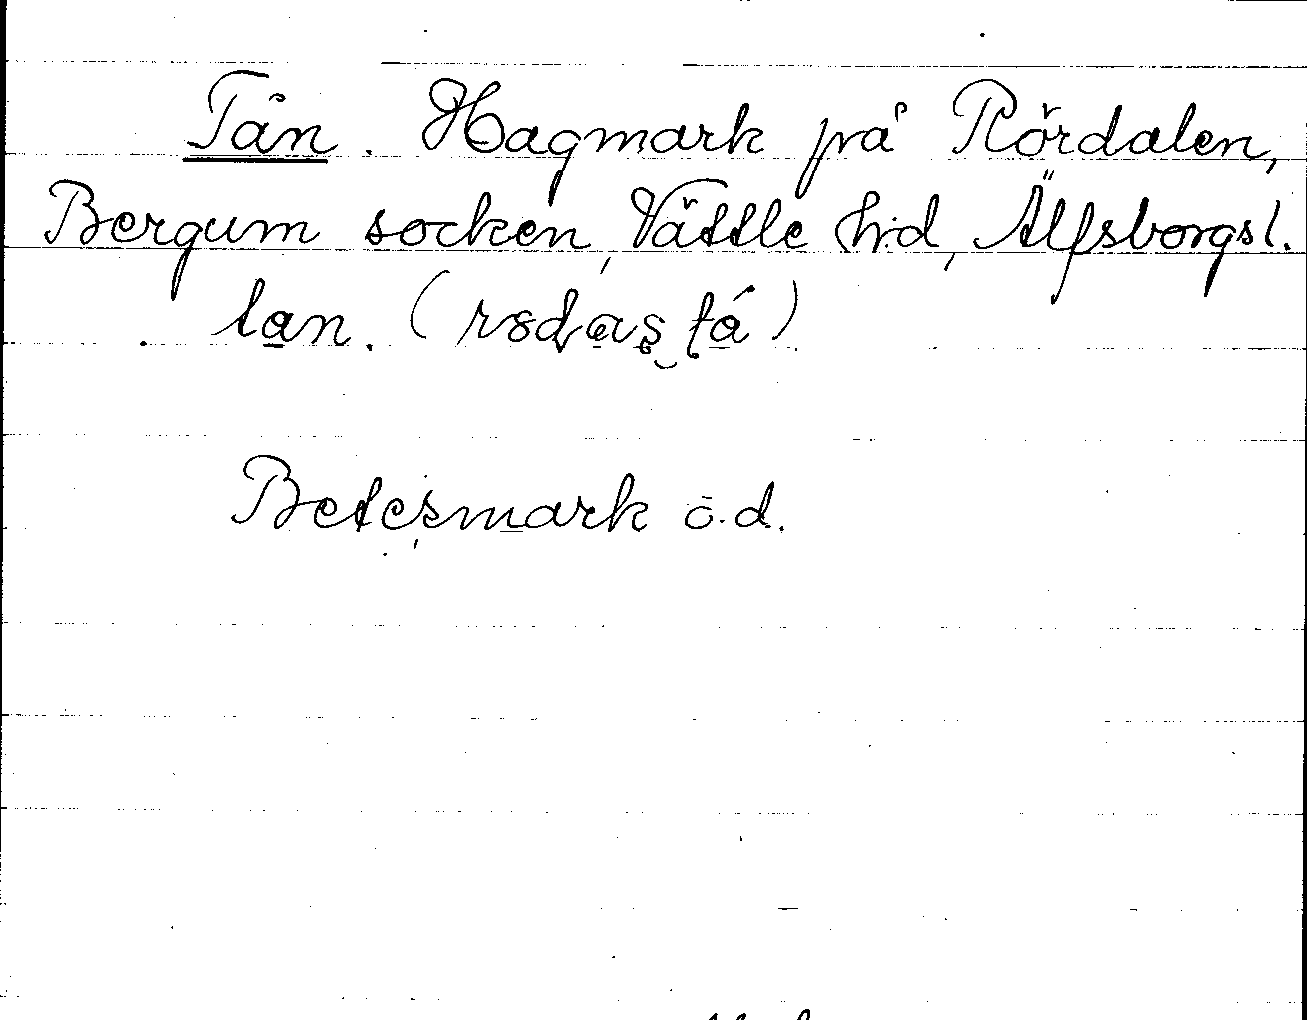 Tån. Hagmark på Rördalen,
Bergum socken, Vättle h:d, Älfsborgsl.
Betesmark ö.d.